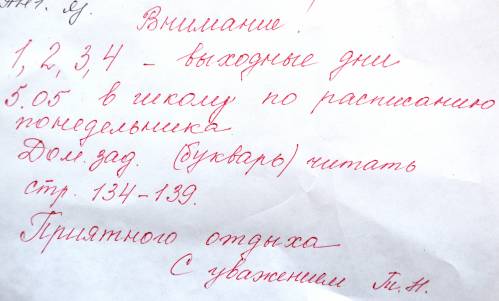 Внимание!
1, 2, 3, 4 - выходные дни
5.05 в школу по расписанию
понедельника
Дом. зад. (букварь) читать
стр. 134-139.
Приятного отдыха
С уважением Т.Н.